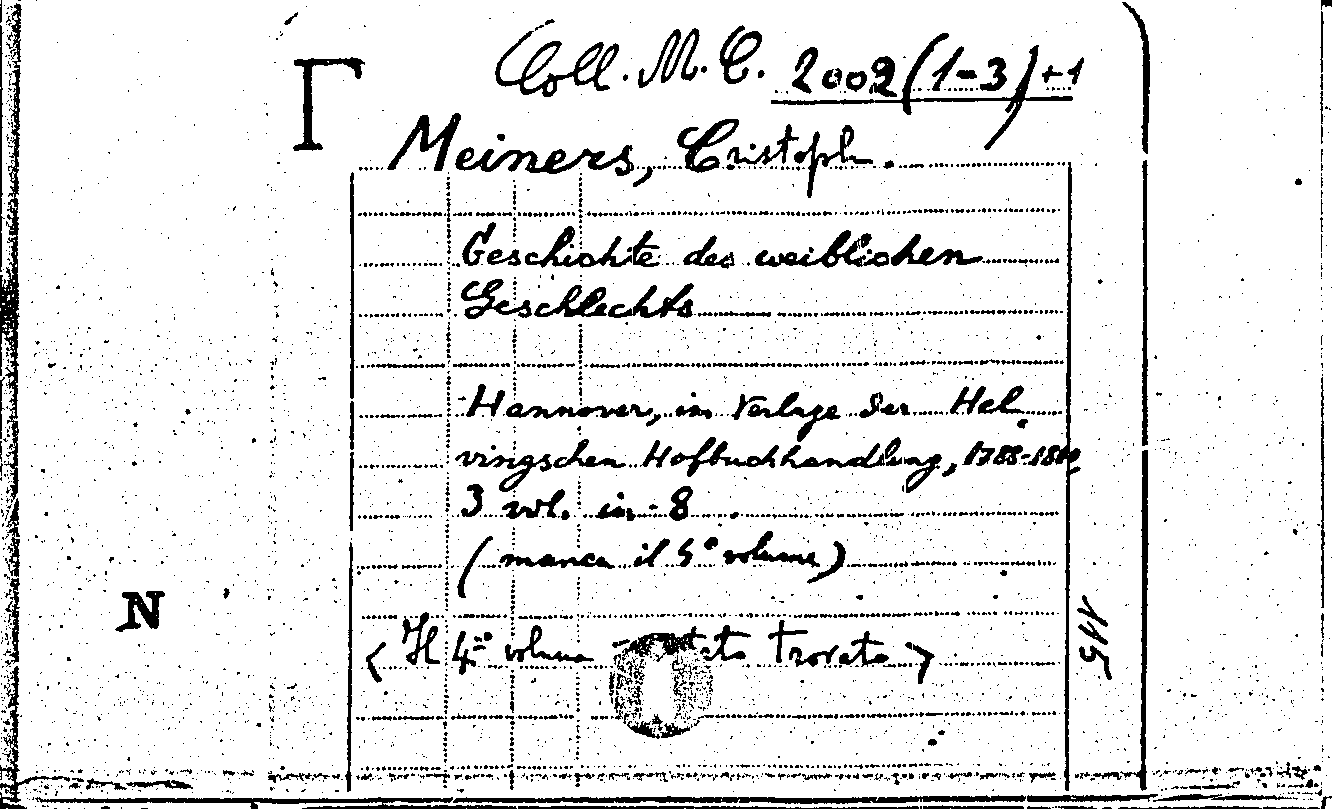 Γ
Coll. M. C. 2002(1-3)+1
Meiners, Cristoph.
Geschichte des weiblichen
Geschlechts
Hannover, im Verlage der Hel
vingschen Hofbuchhandlung, 1788-1800,
3 vol. in-8
(manca il 4º volume)
N
<Il 4º volume trovato>
115